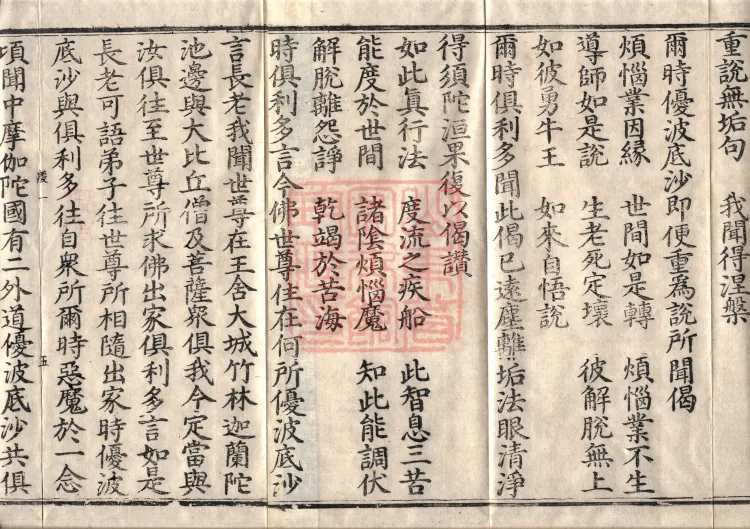 重說無垢句　我聞得涅槃
爾時優波底沙即便重爲說所聞偈
煩惱業因緣　世間如是轉　煩惱業不生
導師如是說　生老死定壞　彼解脫無上
如彼勇牛王　如來自悟說
爾時俱利多聞此偈已遠塵離垢法眼清淨
得須陀洹果復以偈讃
如此眞行法　度流之疾船　此智息三苦
能度於世間　諸陰煩惱魔　知此能調伏
解脫離怨諍　乾竭於苦海
時俱利多言今佛世尊住在何所優波底沙
言長老我聞世尊在王舍大城竹林迦蘭陀
池邊與大比丘僧及菩薩衆俱我今定當與
汝俱往至世尊所求佛出家俱利多言如是
長老可語弟子往世尊所相隨出家時優波
底沙與俱利多往自衆所爾時惡魔於一念
陵一　五
頃聞中摩伽陀國有二外道優波底沙共俱